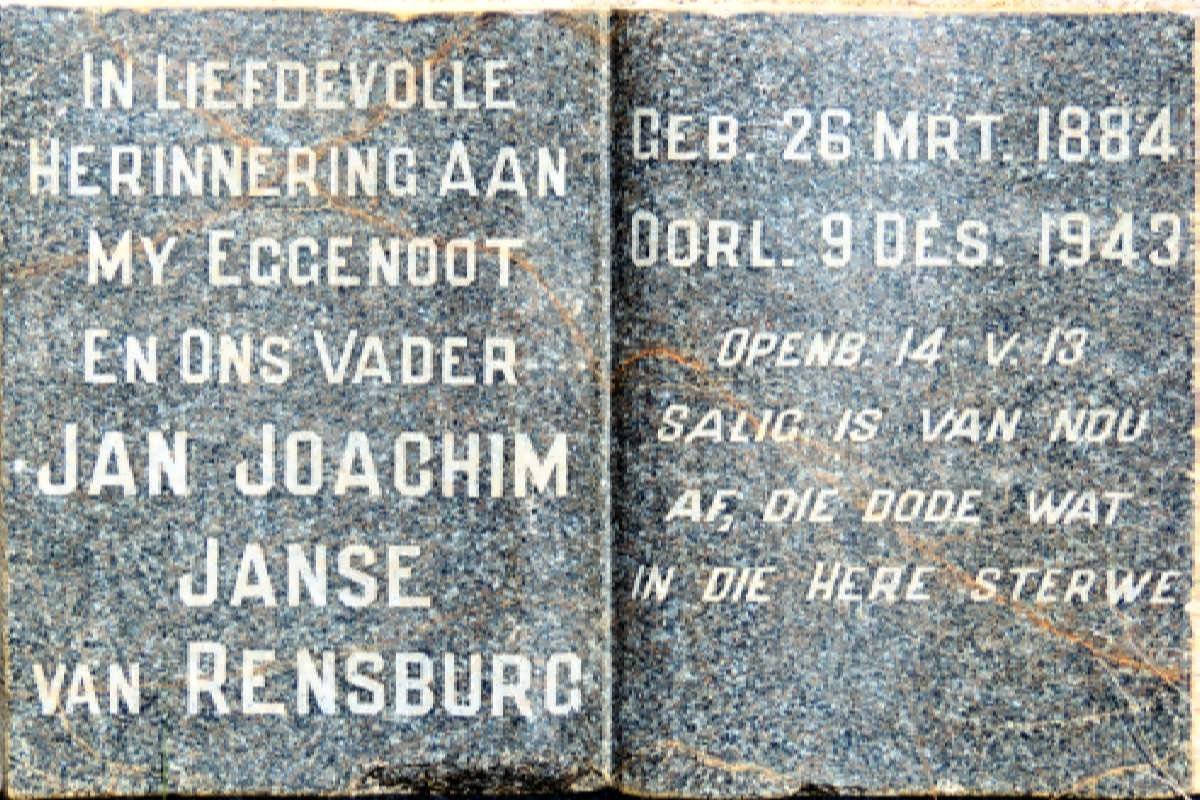 IN LIEFDEVOLLE
HERINNERING AAN
MY EGGENOOT
EN ONS VADER
JAN JOACHIM
JANSE
VAN RENSBURG
GEB. 26 MRT. 1884
OORL. 9 DES. 1943
OPENB. 14 V. 13
SALIG IS VAN NOU
AF, DIE DODE WAT
IN DIE HERE STERWE